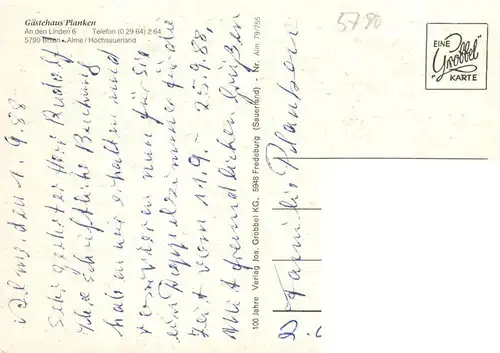 Gästehaus Planken
An den Linden 6 Telefon (0 29 64) 2 64
5790 Brilon-Alme / Hochsauerland
5790
EINE
"Grobbel"
KARTE
Alme, den 1.9.88
Sehr geehrter Herr Rudolf
Ihre schriftliche Buchung
haben wir erhalten und
reservieren nun für Sie
ein Doppelzimmer für die
Zeit vom 11.9. - 25.9.88.
Mit freundlichen Grüßen
100 Jahre Verlag Jos. Grobbel KG, 5948 Fredeburg (Sauerland) · Nr. Alm. 79/755
Familie Planken